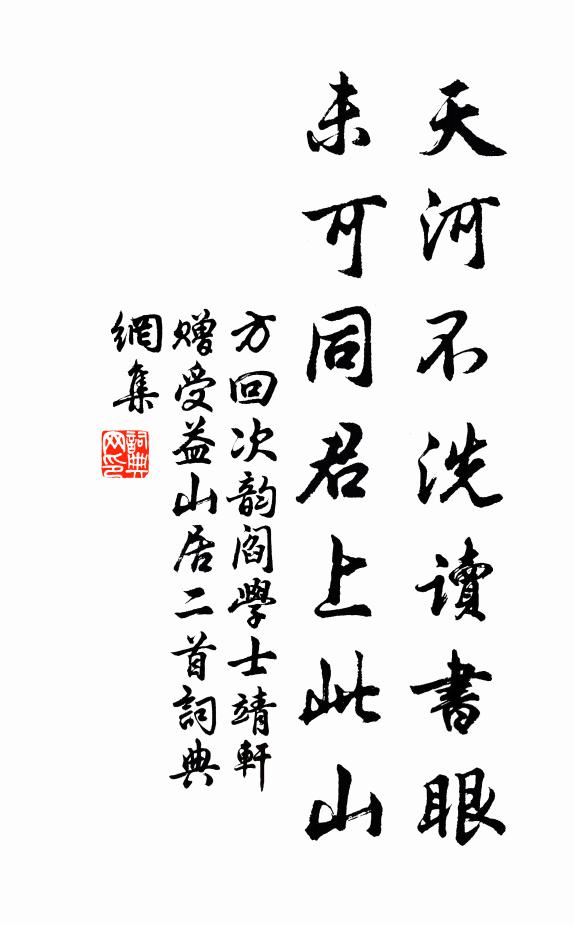 天河不洗讀書眼
未可同君上此山
方回次韵閻學士靖軒
贈受益山居二首詞典
網集
詞典
网印